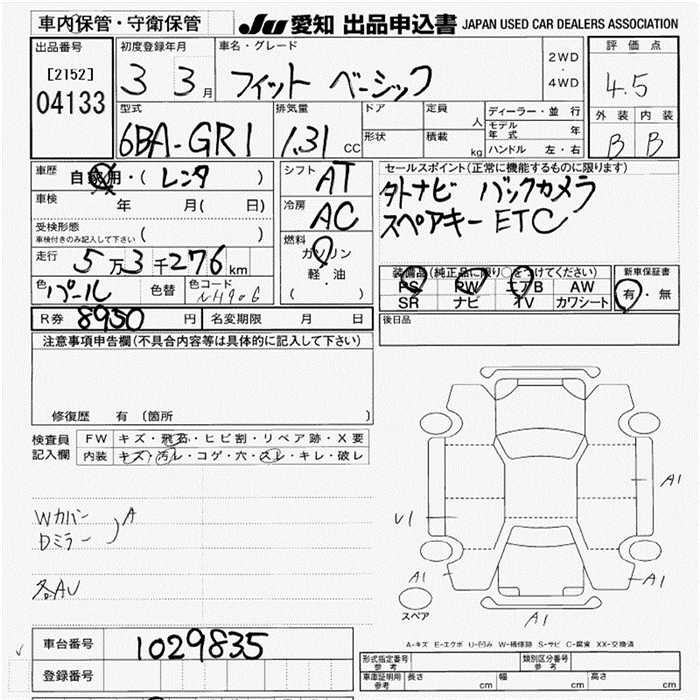 車内保管・守衛保管
JU 愛知 出品申込書 JAPAN USED CAR DEALERS ASSOCIATION
出品番号
[2152]
04133
初度登録年月
3 3月
車名・グレード
フィット ベーシック
2WD
・
4WD
評価点
4.5
外装 内装
B B
型式
6BA-GR1
排気量
1.31 CC
ドア
形状
定員 人
積載 kg
ディーラー・並行
モデル年式 年
ハンドル 左・右
車歴
自家用・( レンタ )
車検 年 月( 日)
受検形態
車検付きのみ記入して下さい ( )
走行 5万3千276km
色 パール 色替 色コード NH906
シフト AT
冷房 AC
燃料
ガソリン
軽・油
( )
セールスポイント(正常に機能するものに限ります)
タトナビ バックカメラ
スペアキー ETC
装備品(純正品に限り○をつけてください)
PS PW エアB AW
SR ナビ TV カワシート
新車保証書
有・無
R券 8950 円 名変期限 月 日
後日品
注意事項申告欄(不具合内容等は具体的に記入して下さい)
修復歴 有 〔箇所 〕
検査員記入欄
FW キズ・飛石・ヒビ割・リペア跡・X要
内装 キズ・汚レ・コゲ・穴・スレ・キレ・破レ
Wカバー
Dミラー
A
各AU
A1
U1
A1
A1
A1
スペア
A-キズ E-エクボ U-凹み W-補修跡 S-サビ C-腐食 XX-交換済
車台番号 1029835
登録番号
形式指定番号 参考
類別区分番号 参考
車庫証明用 参考 長さ cm 幅 cm 高さ cm